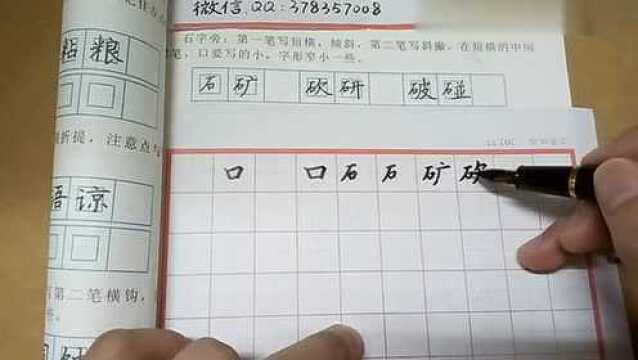 微信.QQ:378357008
石字旁: 第一笔写短横, 倾斜, 第二笔写斜撇, 在短横的中间
笔, 口要写的小, 字形窄小一些.
石 矿 砍 研 破 碰
粘 粮
折提, 注意点与
语 谅
第二笔横钩,
口 口 石 石 矿 砍